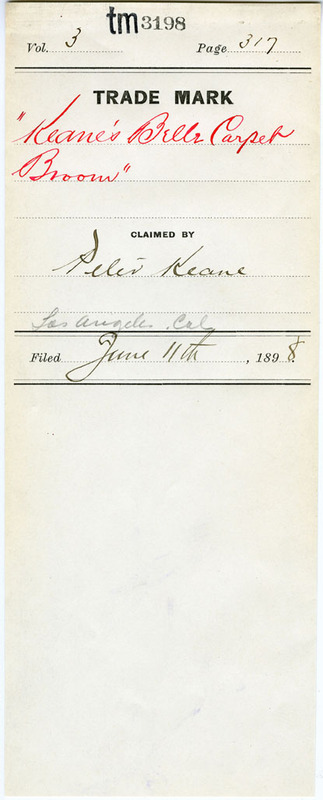 tm3198
Vol. 3 Page 317
TRADE MARK
"Keane's Belle Carpet
Broom"
CLAIMED BY
Peter Keane
Los Angeles. Cal
Filed June 11th, 1898.